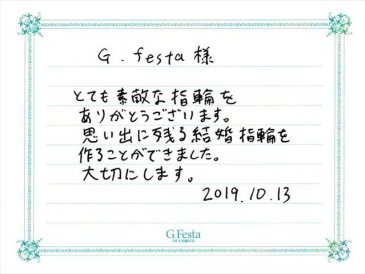 G.festa様
とても素敵な指輪を
ありがとうございます。
思い出に残る結婚指輪を
作ることができました。
大切にします。
2019.10.13
G.Festa
DIAMOND